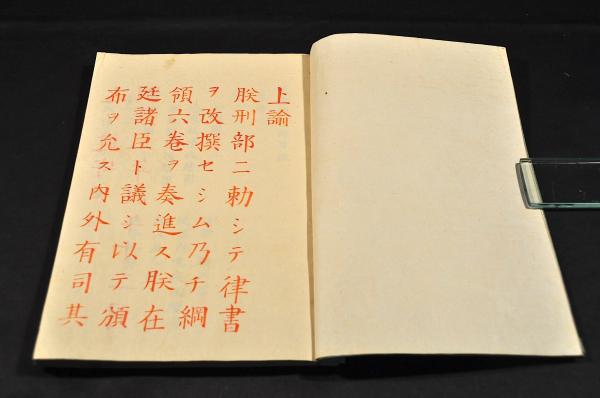 上諭
朕刑部ニ勅シテ律書
ヲ改撰セシム乃チ綱
領六巻ヲ奏進ス朕在
廷諸臣ト議シ以テ頒
布ヲ允ス内外有司其